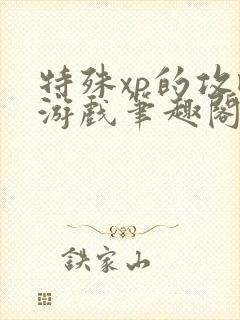 特殊xp的攻
游戏笔趣阁
鉄家山